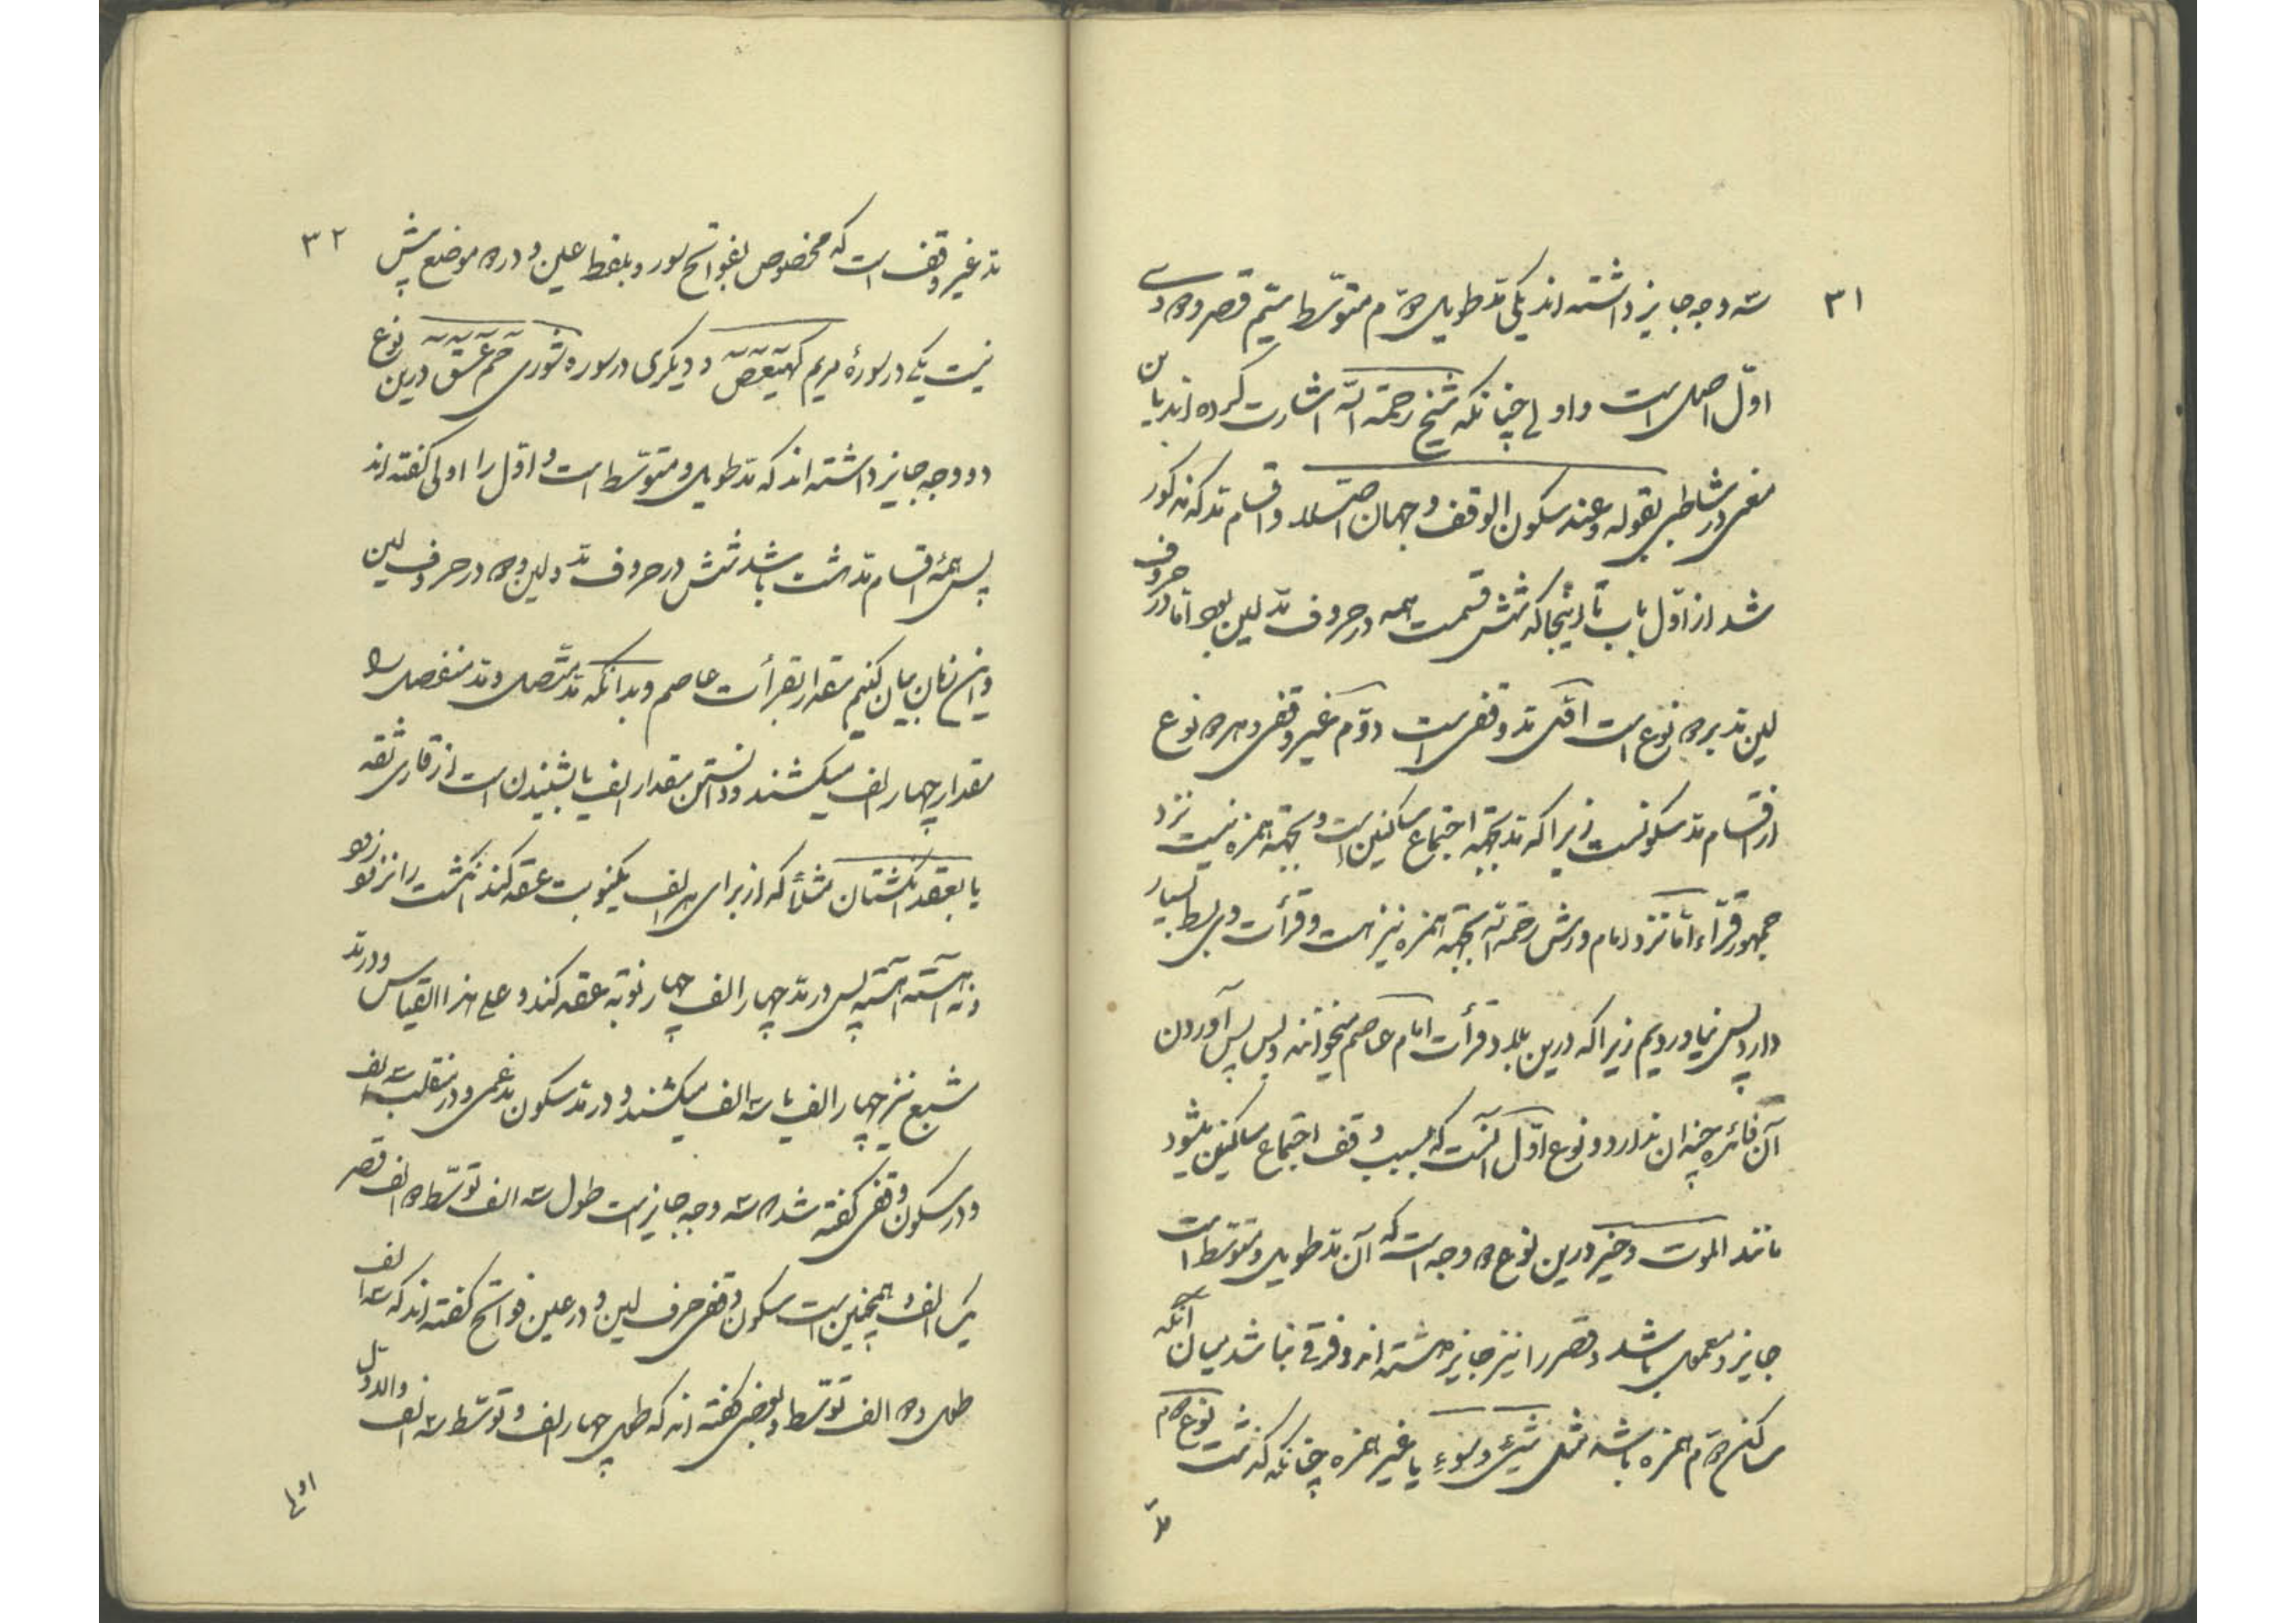 ۳۱
سه وجه جایز داشته اند یکی مد طویل دوّم متوسّط سیّم قصر و وجه
اوّل اصل است و اولی چنانکه شیخ رحمة الله اشارت کرده اند باین
معنی در شاطبی بقوله وعند سکون الوقف وجهان اصّلا و اقسام مد که مذکور
شد از اوّل باب تا اینجا که شش قسمت همه در حروف مدّ لین بود امّا در حروف
لین مد بر دو نوع است اوّل مد وقفی است دوّم غیر وقفی و هر دو نوع
از اقسام مد سکونست زیرا که مد بجهة اجتماع ساکنین است و بجهة همزه نیست نزد
جمهور قرّاء امّا نزد امام ورش رحمة الله بجهة همزه نیز هست و قرأت وی بسط بسیار
دارد پس نیاوردیم زیرا که درین بلاد قرأت امام عاصم میخوانند و بس پس آوردن
آن فائده چندان ندارد و نوع اوّل آنست که بسبب وقف اجتماع ساکنین میشود
مانند الموت و خیر درین نوع دو وجه است که آن مد طویل و متوسّط است
جایز و معمول باشد و قصر را نیز جایز داشته اند و فرقی نباشد میان آنکه
ساکن دوّم همزه باشد مثل شیئ و سوء یا غیر همزه چنانکه گذشت نوع دوم
مد
۳۲
مد غیر وقف است که مخصوص بفواتح سور و بلفظ عین و در دو موضع بیش
نیست یکی در سورۀ مریم کهیعص و دیگری در سوره شوری حم عسق درین نوع
دو وجه جایز داشته اند که مد طویل و متوسّط است و اوّل را اولی گفته اند
پس همۀ اقسام مد هشت باشد شش در حروف مدّ و لین و دو در حروف لین
و این زمان بیان کنیم مقدار بقرأت عاصم و بدانکه مد متّصل و مد منفصل را
مقدار چهار الف میکشند و دانستن مقدار الف یا بشنیدن است از قاری ثقه
یا بعقد انگشتان مثلاً که از برای هر الف یکنوبت عقد کند انگشت را نه زود
و نه آهسته آهسته پس در مدّ چهار الف چهار نوبة عقد کند و علی هذا القیاس و در مد
شبع نیز چهار الف یا سه الف میکشند و در مد سکون مدغمی و در منقلب سه الف
و در سکون وقفی گفته شد که سه وجه جایز است طول سه الف توسّط دو الف قصر
یک الف و همچنین است سکون وقفی حرف لین و در عین فواتح گفته اند که سه الف
طول و دو الف توسّط و بعضی گفته اند که طول چهار الف و توسّط سه الف والاوّل
اولی